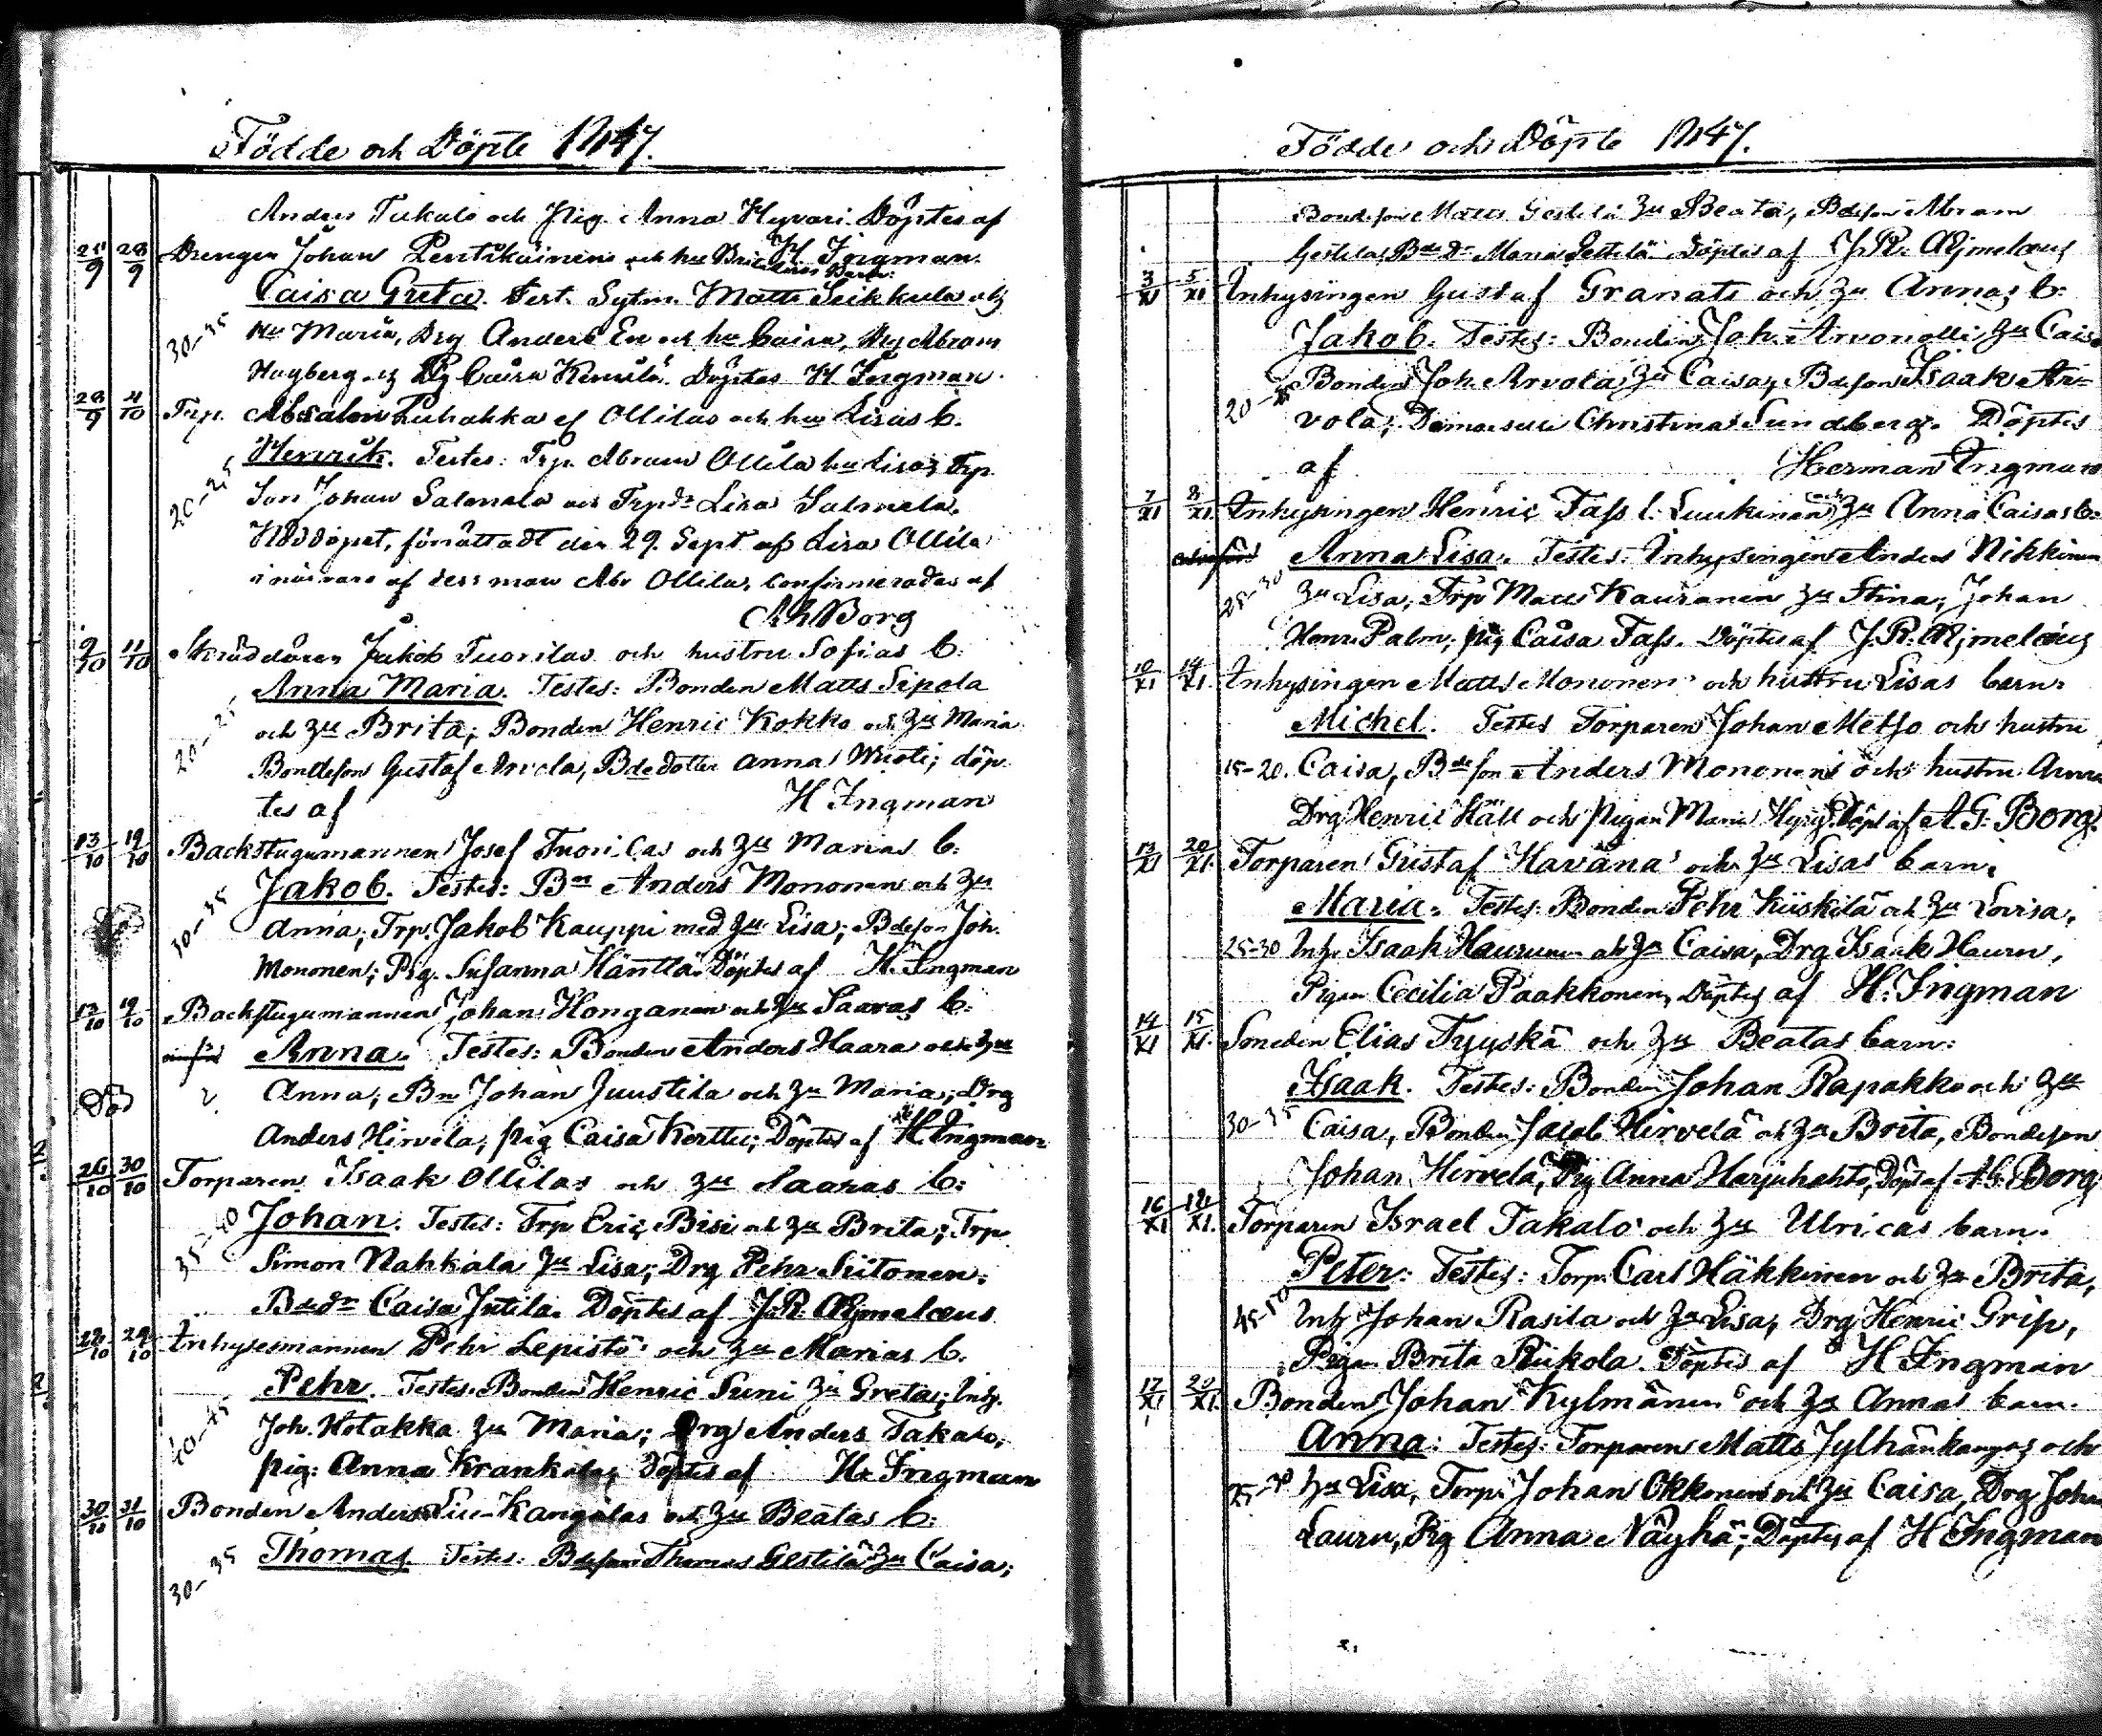 Födde och Döpte 1847.
Anders Takalo och Pig. Anna Hyvari. Döptes af
25/9 28/9 Drengen Johan Pentikäinens och hu Brita H Ingman.
Caisa Greta. Test. Sytn. Matts Seikkula och
30-35 Hu Maria, Drg Anders En och hu Caisa, Drg Abram
Hagberg och Pg Caisa Döptes H Ingman.
28/9 4/10 Trp. Absalon Puhakka Ollilas och hus Lisas b.
Henrik. Testes: Trp. Abram Ollila hu Lisa; Trp
20-25 Son Johan Salmela och Trpdr Lisa Salmela.
Nöddopet, förrättadt den 29. Sept af Lisa Ollila
i närvaro af dess man Abr Ollila, confirmerades af
Borg
9/10 11/10 Skräddaren Jakob Tuorilas och hustru Sofias b:
Anna Maria. Testes: Bonden Matts Sipola
20-25 och Hu Brita; Bonden Henric Kokko och Hu Maria
Bondeson Gustaf Arvola, Bdedotter Anna Wuoti; döp-
tes af H Ingman
13/10 19/10 Backstugumannen Josef Tuorilas och Hu Marias b:
Jakob. Testes: Bon Anders Mononen och Hu
30-35 Anna; Trp. Jakob Kauppi med Hu Lisa; Bdeson Joh.
Mononen; Pig. Susanna Häntlä. Döptes af H. Ingman
12/10 19/10 Backstugumannen Johan Honganen och Hu Saaras b:
Anna. Testes: Bonden Anders Haara och Hu
Anna; Bn Johan Juustila och Hu Maria; Drg
Anders Hirvela; pig Caisa Kerttu; Döptes af H Ingman
26/10 30/10 Torparen Isaak Ollilas och Hu Saaras b:
35-40 Johan. Testes: Trp Eric Bisi och Hu Brita; Trp
Simon Nahkala Hu Lisa; Drg Pehr Siitonen;
Bdedr Caisa Jutila. Döptes af J.R. Aejmelaeus
28/10 29/10 Inhysesmannen Pehr Lepistö och Hu Marias b.
Pehr. Testes: Bonden Henric Suni Hu Greta; Inh.
40-45 Joh. Hotakka Hu Maria; Drg Anders Takalo;
pig: Anna Krankala; Döptes af H. Ingman
30/10 31/10 Bonden Anders Kangalas och Hu Beatas b:
30-35 Thomas. Testes: Bdeson Thomas Gestilä Hu Caisa;
Födde och Döpte 1847.
Bondeson Matts Gestilä Hu Beata, Bdeson Abram
Gestila, Bde Dr Maria Gestilä Döptes af J.R. Aejmelaeus
3/XI 5/XI Inhysingen Gustaf Granats och Hu Annas b:
Jakob. Testes: Bonden Joh. Arvonolli Hu Caisa
20-25 Bonden Joh. Arvola Hu Caisa, Bdeson Isaak Ar-
vola; Demoiselle Christina Sundberg. Döptes
af Herman Ingman
7/XI 8/XI Inhysingen Henric Fass l. Luukinen och Hu Anna Caisas b:
Anna Lisa. Testes: Inhysingen Anders Nikkinen
25-30 Hu Lisa; Trp Matts Kauranen Hu Stina; Johan
Henr. Palm; pig Caisa Fass. Döptes af J.R. Aejmelaeus
10/XI 14/XI. Inhysingen Matts Mononen och hustru Lisas barn:
Michel. Testes Torparen Johan Metso och hustru
15-20. Caisa, Bdeson Anders Mononen och hustru Anna
Drg Henric Häll och Pigan Maria Döpt af A.G. Borg.
13/XI 20/XI. Torparen Gustaf Havana och Hu Lisas barn.
Maria. Testes: Bonden Pehr Kiiskilä och Hu Lovisa,
25-30 Inh. Isaak Haurunen och Hu Caisa, Drg Isaak Hauru,
Pigan Cecilia Paakkonen, Döptes af H. Ingman
14/XI 15/XI. Soneden Elias Tyyskä och Hu Beatas barn:
Isaak. Testes: Bonden Johan Rapakko och Hu
30-35 Caisa, Bonden Jacob Hirvelä och Hu Brita, Bondeson
Johan Hirvela, Pig Anna Harjuhahto, Döpt af A.G. Borg
16/XI 18/XI. Torparen Israel Takalo och Hu Ulricas barn.
Peter: Testes: Torp. Carl Häkkinen och Hu Brita,
45-50 Inh Johan Rasila och Hu Lisa; Drg Henric Grip,
Pigan Brita Riikola. Döptes af H Ingman
17/XI 20/XI. Bonden Johan Kylmänen och Hu Annas barn.
Anna: Testes: Torparen Matts Jylhänkangas och
25-30 Hu Lisa, Torp. Johan Okkonen och Hu Caisa, Drg Johan
Lauru, Pig Anna Näyhä; Döptes af H Ingman